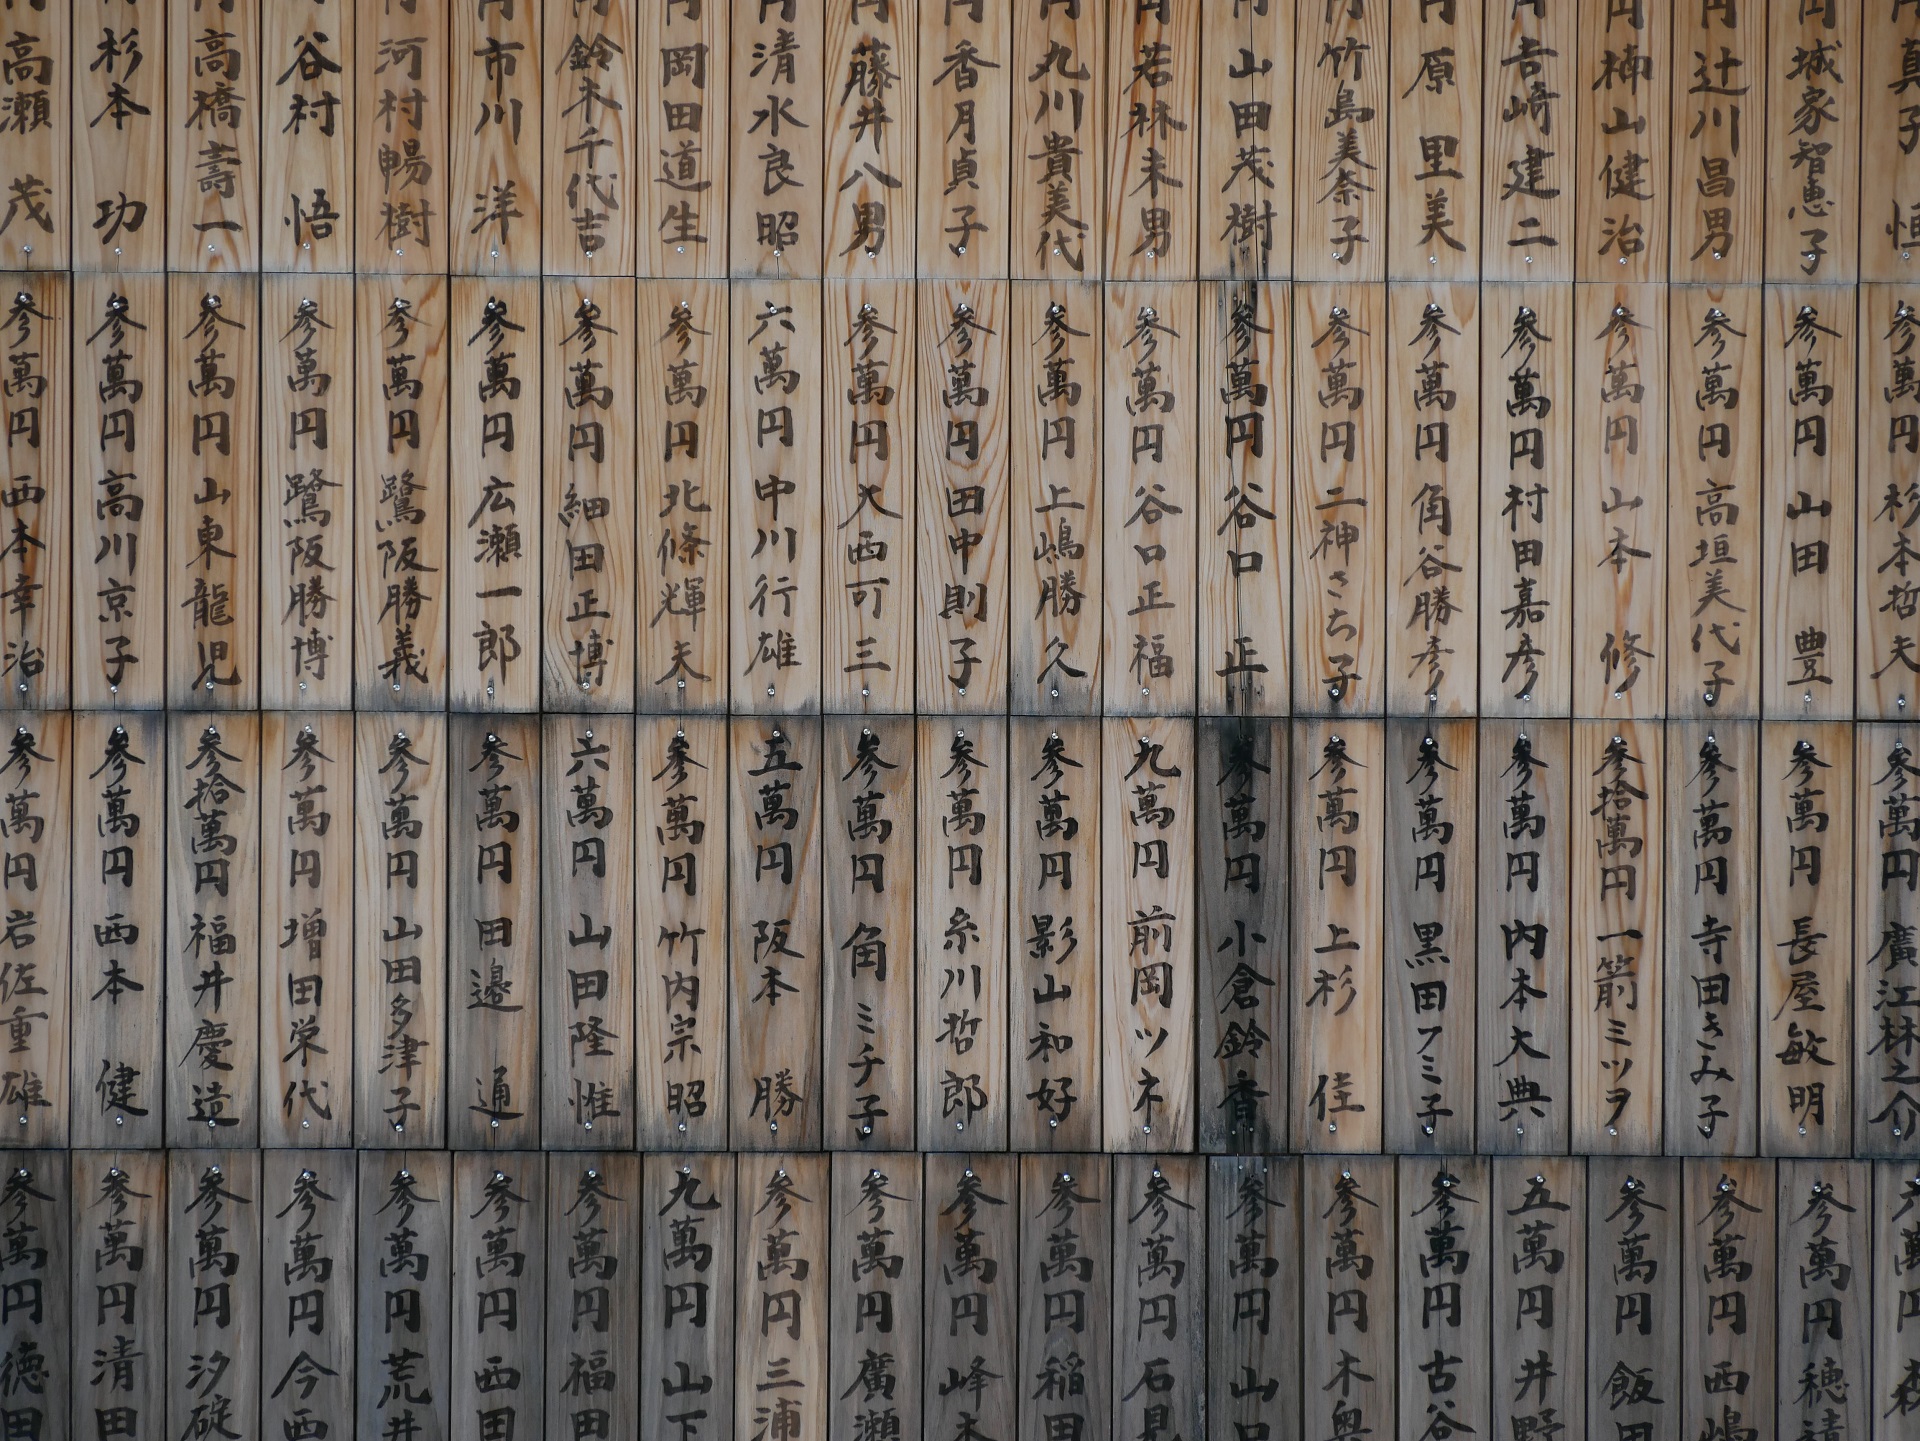 円 真子 恒
円 城家智恵子
円 辻川昌男
円 楠山健治
円 吉崎建二
円 原 里美
円 竹島美奈子
円 山田茂樹
円 若林未男
円 丸川貴美代
円 香月貞子
円 藤井八男
円 清水良昭
円 岡田道生
円 鈴木千代吉
円 市川 洋
円 河村暢樹
円 谷村 悟
円 高橋壽一
円 杉本 功
円 高瀬 茂
参萬円 杉本哲夫
参萬円 山田 豊
参萬円 高垣美代子
参萬円 山本 修
参萬円 村田嘉彦
参萬円 角谷勝彦
参萬円 二神さち子
参萬円 谷口 正
参萬円 谷口正福
参萬円 上嶋勝久
参萬円 田中則子
参萬円 大西可三
六萬円 中川行雄
参萬円 北條輝夫
参萬円 細田正博
参萬円 広瀬一郎
参萬円 鷺阪勝義
参萬円 鷺阪勝博
参萬円 山東龍児
参萬円 高川京子
参萬円 西本幸治
参萬円 廣江林之介
参萬円 長屋敏明
参萬円 寺田きみ子
参拾萬円 一箭ミツヲ
参萬円 内本大典
参萬円 黒田フミ子
参萬円 上杉 佳
参萬円 小倉鈴香
九萬円 前岡ツネ
参萬円 影山和好
参萬円 糸川哲郎
参萬円 角ミチ子
五萬円 阪本 勝
参萬円 竹内宗昭
六萬円 山田隆惟
参萬円 田邊 通
参萬円 山田多津子
参萬円 増田栄代
参拾萬円 福井慶造
参萬円 西本 健
参萬円 岩佐重雄
六萬円 森
参萬円 穂積
参萬円 西嶋
参萬円 飯田
五萬円 井野
参萬円 古谷
参萬円 木奥
参萬円 山口
参萬円 石見
参萬円 稲田
参萬円 峰本
参萬円 廣瀬
参萬円 三浦
九萬円 山下
参萬円 福田
参萬円 西田
参萬円 荒井
参萬円 今西
参萬円 汐碇
参萬円 清田
参萬円 徳田